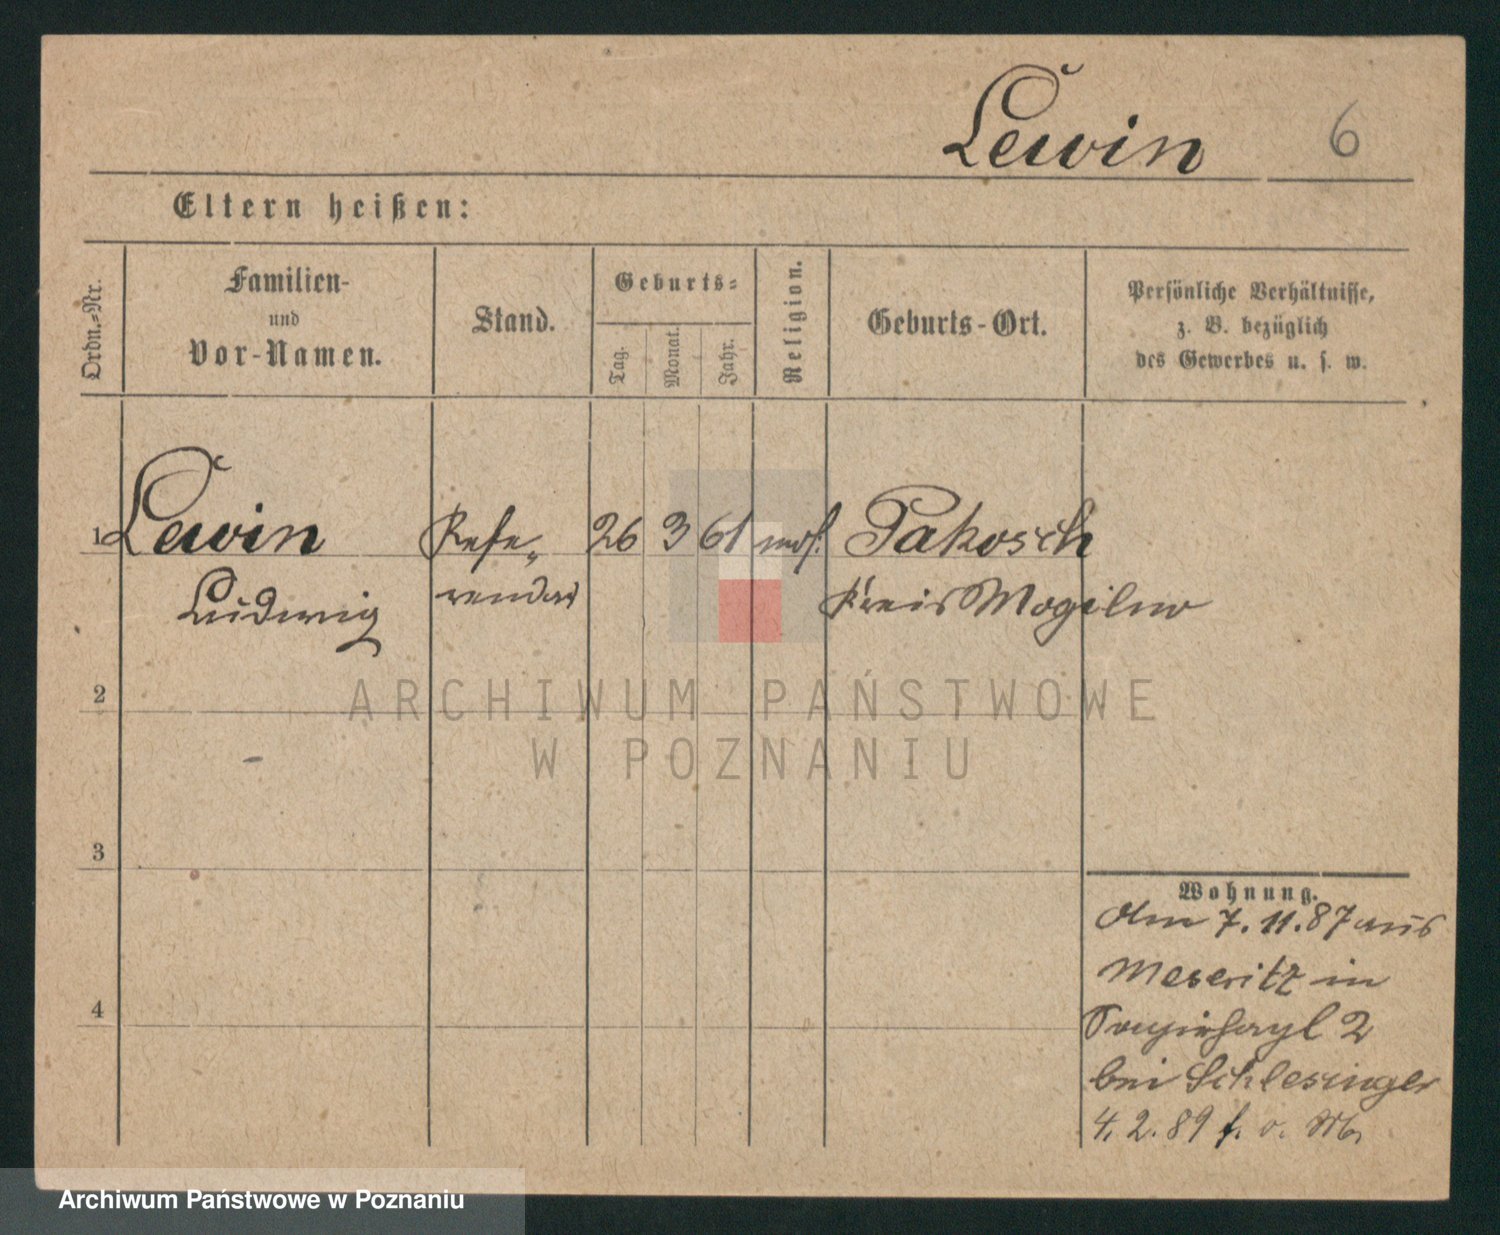 Lewin 6
Eltern heißen:
Ordn.-Nr.
Familien-
und
Vor-Namen.
Stand.
Geburts-
Tag.
Monat.
Jahr.
Religion.
Geburts-Ort.
Persönliche Verhältnisse,
z. B. bezüglich
des Gewerbes u. s. w.
1 Lewin Refe- 26 3 61 mos. Pakosch
Ludwig rendar Kreis Mogilno
2
3
4
Wohnung.
Am 7. 11. 87 aus
Meseritz in
2
bei Schlesinger
4. 2. 89 f. o.
ARCHIWUM PAŃSTWOWE
W POZNANIU
Archiwum Państwowe w Poznaniu